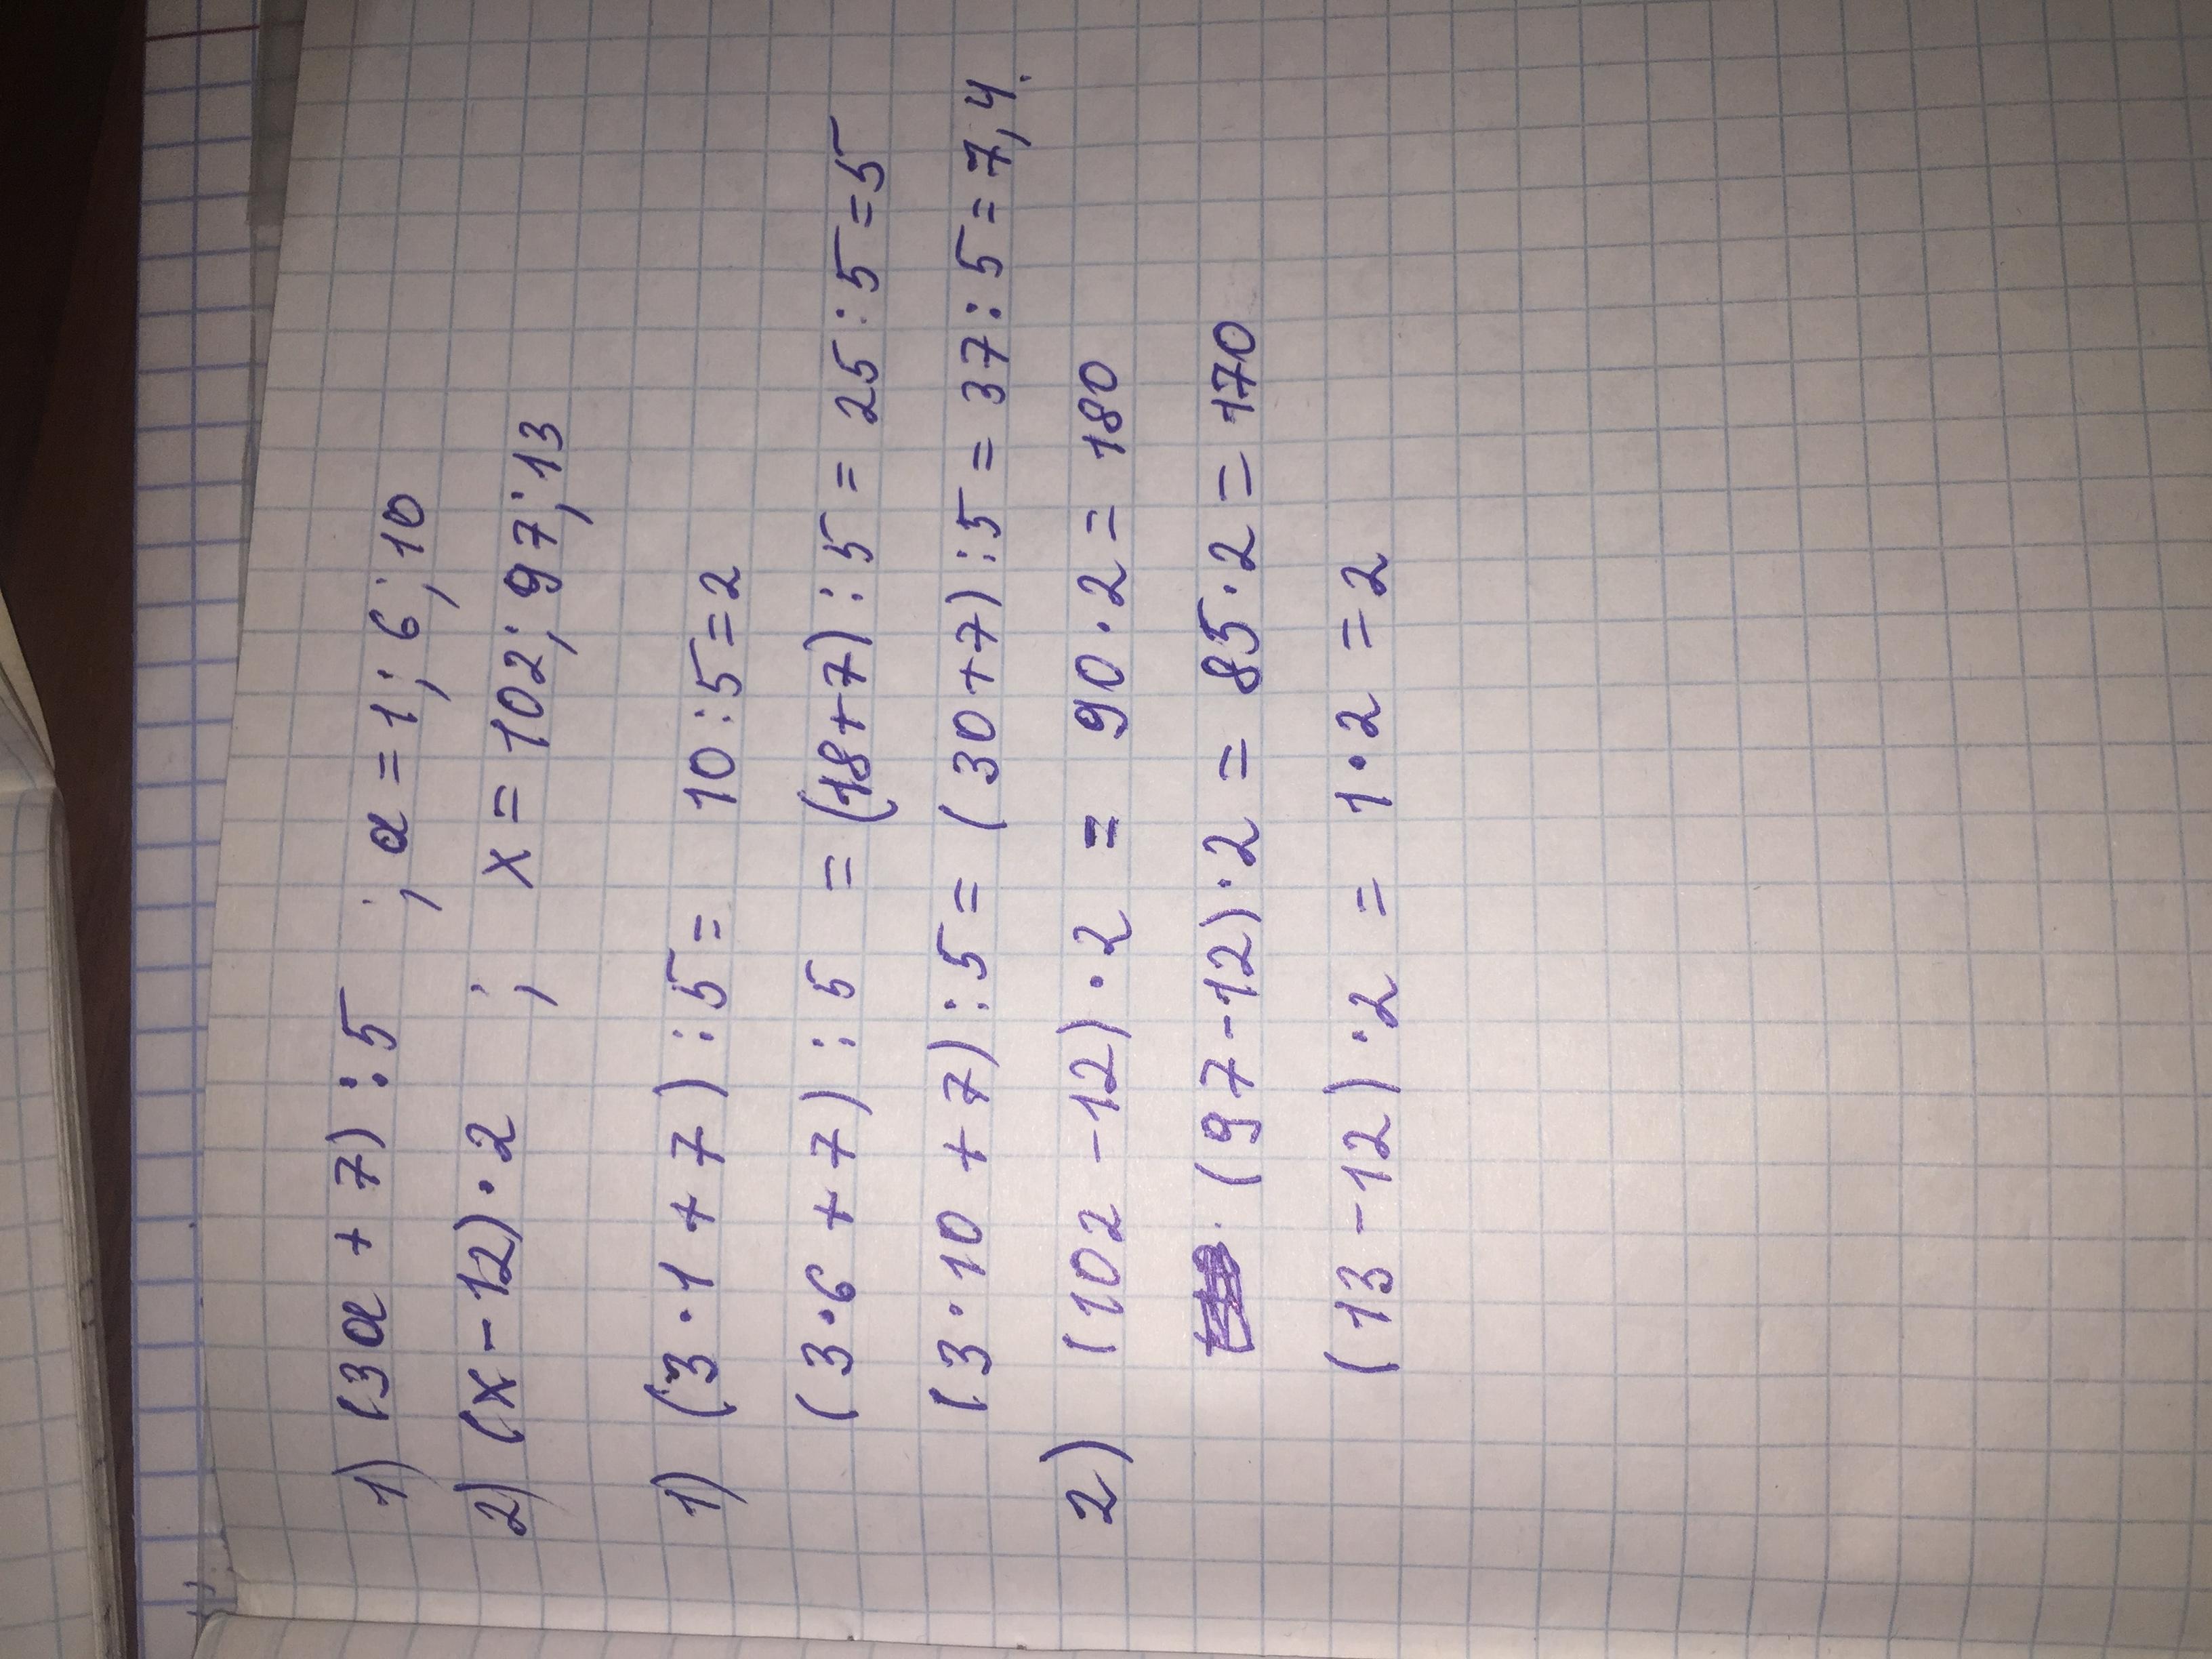 1) (3a + 7) : 5 ; a = 1; 6; 10
2) (x - 12) · 2 ; x = 102; 97; 13
1) (3 · 1 + 7) : 5 = 10 : 5 = 2
(3 · 6 + 7) : 5 = (18 + 7) : 5 = 25 : 5 = 5
(3 · 10 + 7) : 5 = (30 + 7) : 5 = 37 : 5 = 7,4.
2) (102 - 12) · 2 = 90 · 2 = 180
(97 - 12) · 2 = 85 · 2 = 170
(13 - 12) · 2 = 1 · 2 = 2